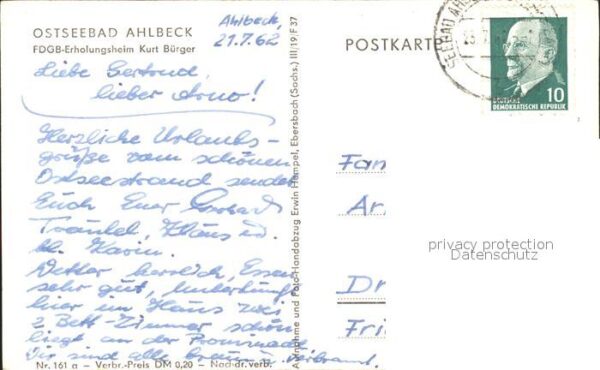 OSTSEEBAD AHLBECK
FDGB-Erholungsheim Kurt Bürger
Ahlbeck,
21.7.62
Liebe Gertrud,
lieber Arno!
Herzliche Urlaubs-
grüße vom schönen
Ostseestrand senden
Euch Euer Gerhard
Traudel, Klaus u.
kl. Karin.
Wetter herrlich, Essen
sehr gut, Unterkunft
hier im Haus
2 Bett-Zimmer schön
liegt an der Promenade
Wir sind alle braun u. verbrannt.
Nr. 161 a - Verbr.-Preis DM 0,20 - Nachdr. verb.
Aufnahme und Foto-Handabzug Erwin Hempel, Ebersbach (Sachs.) III 19 F 37
POSTKARTE
SEEBAD
DEUTSCHE
DEMOKRATISCHE REPUBLIK
10
Fam
Ar
Dr
Fri
privacy protection
Datenschutz